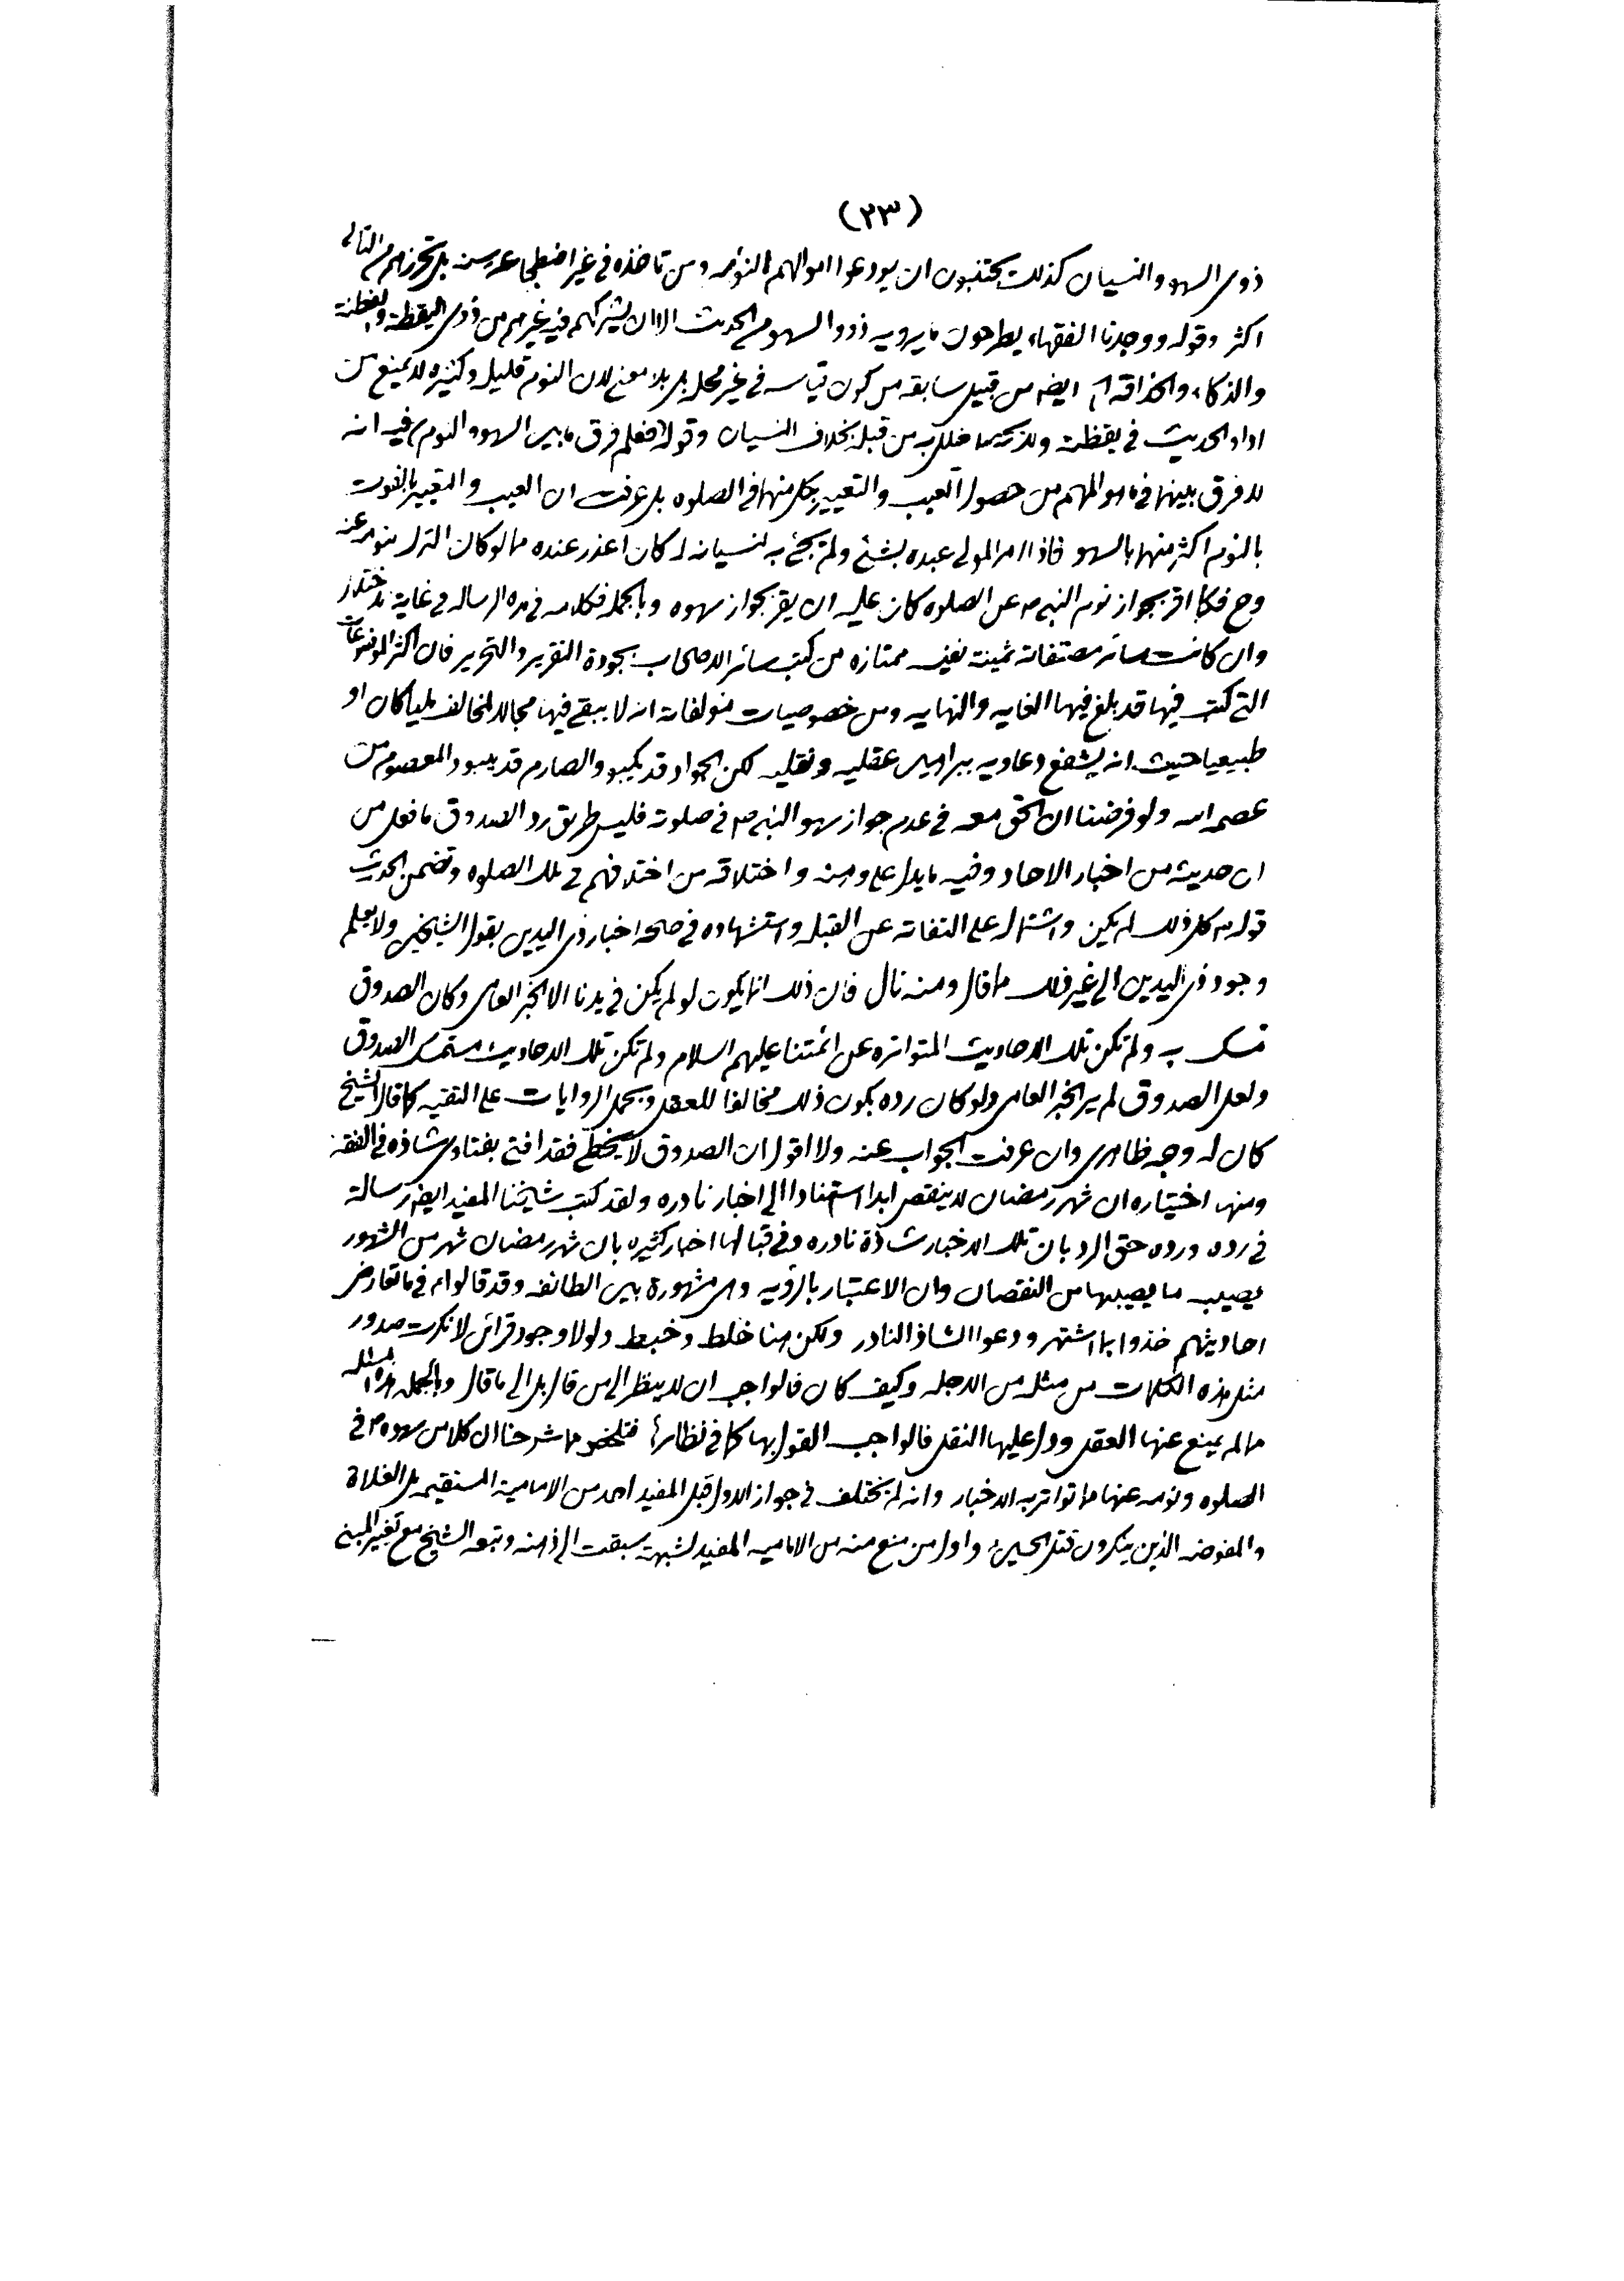 (٢٣)
ذوى السهو والنسيان كذلك يجتنبون ان يودعوا اموالهم النومه ومن تاخذه فى غير اضطجاعه سنه بل تحرزهم من الثانى
اكثر وقوله ووجدنا الفقهاء يطرحون ما يرويه ذوو السهو من الحديث الا ان يشركهم فيه غيرهم من ذوى اليقظة والفطنة
والذكاء والحذاقه ايضا من قبيل سابقه من كون قياسه فى غير محله بل بلا معنى لان النوم قليله وكثيره لا يمنع من
اداء الحديث فى يقظته من قبله بخلاف النسيان وقوله فعلم فرق ما بين السهو والنوم فيه انه
لا فرق بينهما فى ما هو المهم من حصول العيب والتعيير بكل منهما فى الصلوه بل عرفت ان العيب والتعيير بالفوت
بالنوم اكثر منهما بالسهو فاذا امر المولى عبده بشئ ولم يجئ به لنسيانه له كان اعذر عنده مما لو كان الترك بنومه عنه
وح فكما اقر بجواز نوم النبى ص عن الصلوه كان عليه ان يقر بجواز سهوه وبالجمله فكلامه فى هذه الرساله فى غاية الاختلال
وان كانت سائر مصنفاته ثمينة نفيسه ممتازه من كتب سائر الاصحاب بجودة التقرير والتحرير فان اكثر الموضوعات
التى كتب فيها قد بلغ فيها الغايه والنهايه ومن خصوصيات مؤلفاته انه لا يبقى فيها مجالا لمخالف مليا كان او
طبيعيا حيث انه يشفع دعاويه ببراهين عقليه ونقليه لكن الجواد قد يكبو والصارم قد ينبو والمعصوم من
عصمه الله ولو فرضنا ان الحق معه فى عدم جواز سهو النبى ص فى صلوته فليس طريق رد الصدوق ما فعل من
ان حديثه من اخبار الاحاد وفيه ما يدل على وهنه واختلاقه من اختلافهم فى تلك الصلوه وتضمن الحديث
قوله ص كل ذلك لم يكن واشتماله على التفاته عن القبله واستشهاده فى صحة اخبار ذى اليدين بقول الشيخين ولا يعلم
وجود ذى اليدين الى غير ذلك مما قال ومنه نال فان ذلك انما يكون لو لم يكن فى يدنا الا الخبر العامى وكان الصدوق
تمسك به ولم تكن تلك الاحاديث المتواتره عن ائمتنا عليهم السلام ولم تكن تلك الاحاديث مستمسك الصدوق
ولعل الصدوق لم ير الخبر العامى ولو كان رده بكون ذلك مخالفا للعقل وبحمل الروايات على التقيه كما قال الشيخ
كان له وجه ظاهرى وان عرفت الجواب عنه ولا اقول ان الصدوق لا يخطئ فقد افتى بفتاوى شاذه فى الفقه
ومنها اختياره ان شهر رمضان لا ينقص ابدا استنادا الى اخبار نادره ولقد كتب شيخنا المفيد ايضا رسالة
فى رده ورده حق الرد بان تلك الاخبار شاذة نادره وفى قبالها اخبار كثيره بان شهر رمضان شهر من الشهور
يصيبه ما يصيبها من النقصان وان الاعتبار بالرؤيه وهى مشهورة بين الطائفه وقد قالوا ع فى ما تعارض
احاديثهم خذوا بما اشتهر ودعوا الشاذ النادر ولكن هنا خلط وخبط ولولا وجود قرائن لانكرت صدور
مثل هذه الكلمات من مثله من الاجله وكيف كان فالواجب ان لا ينظر الى من قال بل الى ما قال وبالجمله هذه المسئله
مما لم يمنع عنها العقل ودل عليها النقل فالواجب القول بها كما فى نظائرها فتلخص مما شرحنا ان كلا من سهوه ص فى
الصلوه ونومه عنها مما تواتر به الاخبار وانه لم يختلف فى جواز الاول قبل المفيد احد من الامامية المستقيمه بل الغلاة
والمفوضه الذين ينكرون قتل الحسين ع واول من منع منه من الاماميه المفيد لشبهة سبقت الى ذهنه وتبعه الشيخ مع تغيير المبنى